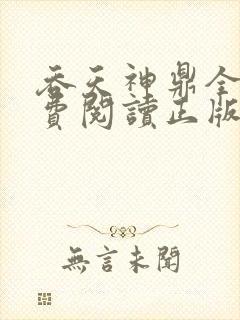 吞天神鼎全
費閱讀正版
無言未聞